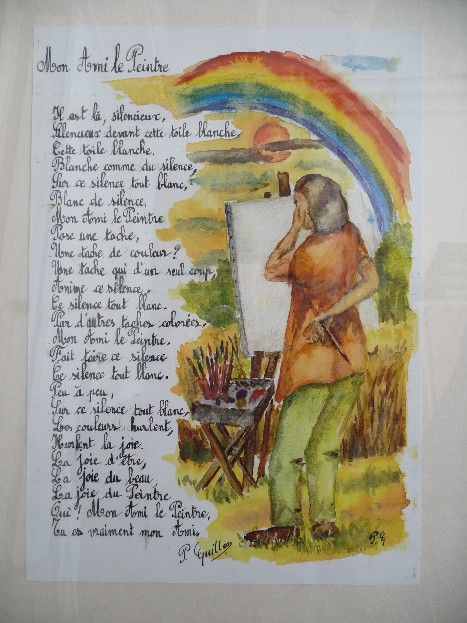 Mon Ami le Peintre
Il est là, silencieux,
Silencieux devant cette toile blanche,
Cette toile blanche.
Blanche comme du silence,
Sur ce silence tout blanc,
Blanc de silence,
Mon Ami le Peintre
Pose une tache,
Une tache de couleur ?
Une tache qui d'un seul coup,
Anime ce silence,
Ce silence tout blanc.
Par d'autres taches colorées,
Mon Ami le Peintre,
Fait taire ce silence
Ce silence tout blanc.
Peu à peu,
Sur ce silence tout blanc,
Les couleurs hurlent,
Hurlent la joie.
La joie d'être,
La joie du beau,
La joie du Peintre
Que ! Mon Ami le Peintre,
Tu es vraiment mon Ami.
P. Guillon
P.G